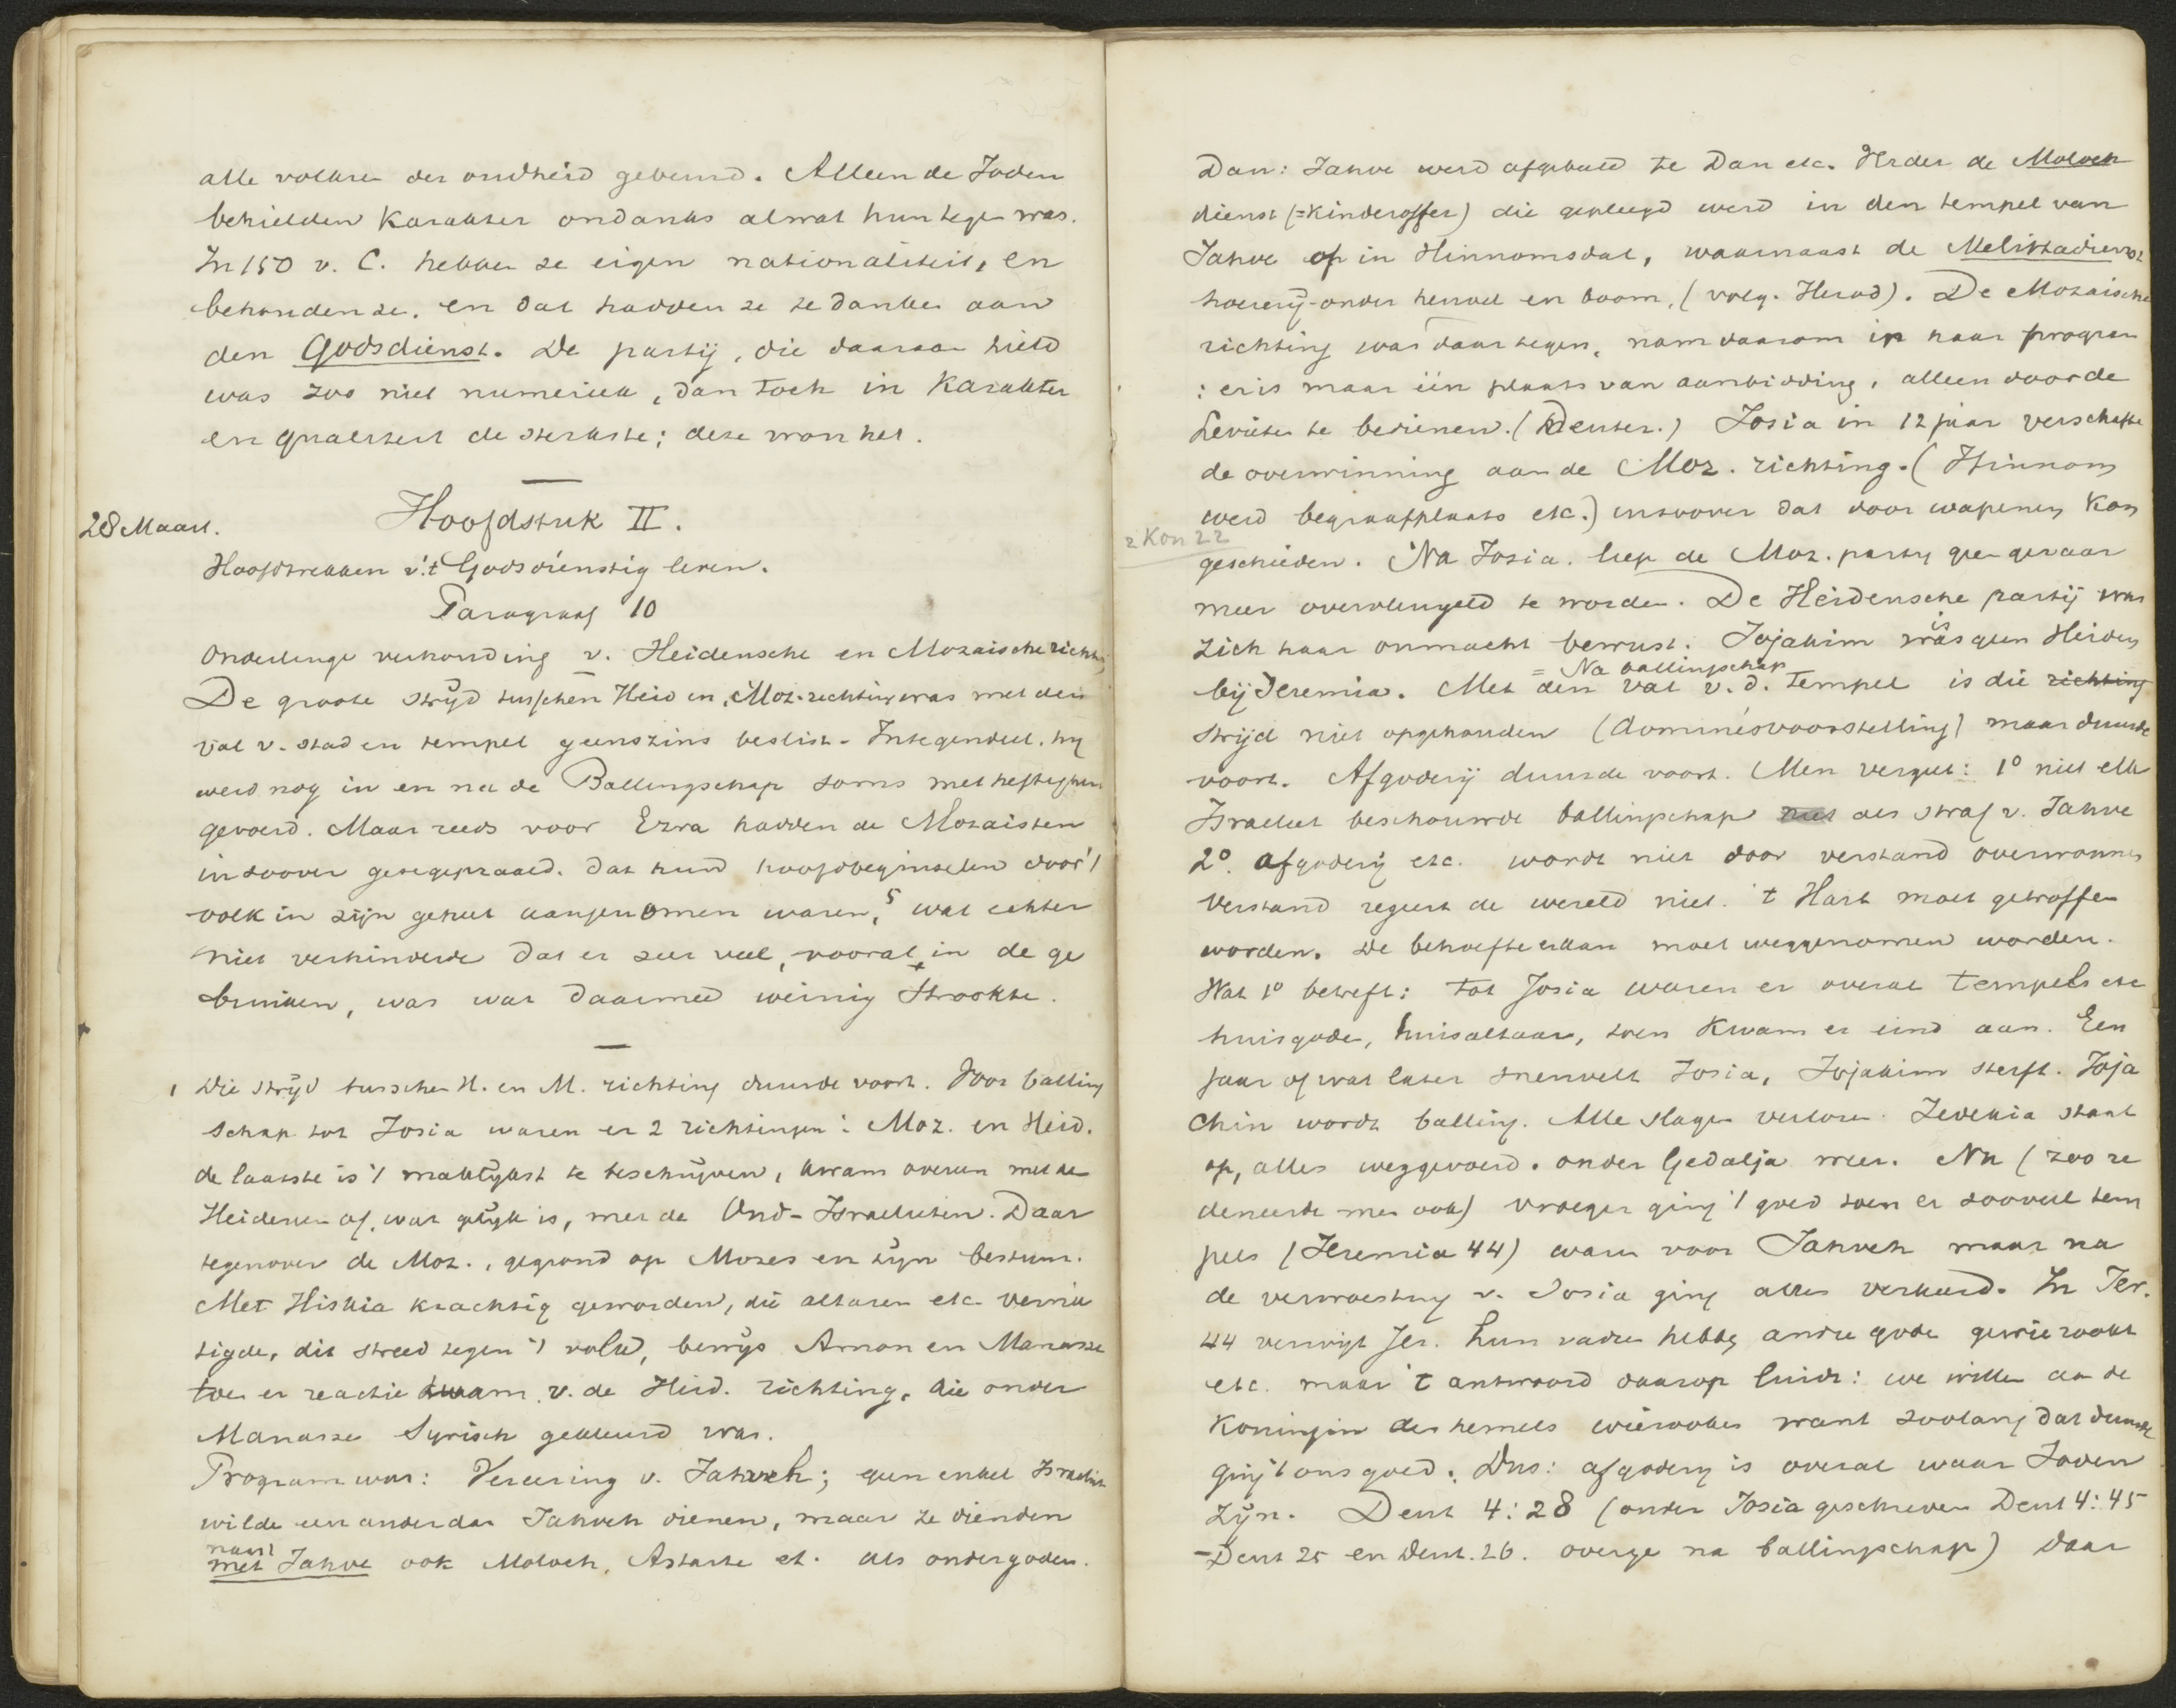 alle volken der oudheid gebeurd. Alleen de Joden
behielden karakter ondanks alwat hun tegen was.
In 150 v. C. hebben ze eigen nationaliteit, en
behouden ze. en dat hadden ze te danken aan
den Godsdienst. De partij, die daaraan hield
was zoo niet numeriek, dan toch in karakter
en qualiteit de sterkste; deze won het.
28 Maart. Hoofdstuk II.
Hoofdtrekken v.'t Godsdienstig leven.
Paragraaf 10
Onderlinge verhouding v. Heidensche en Mozaische richt.
De groote strijd tusschen Heid en Moz. richting was met den
val v. stad en tempel geenszins beslist. Integendeel. hij
werd nog in en na de Ballingschap soms met heftigheid
gevoerd. Maar reeds voor Ezra hadden de Mozaisten
in zoover gezegepraald. dat hund hoofdbeginselen door 't
volk in zijn geheel aangenomen waren, wat echter
niet verhinderde dat er zeer veel, vooral in de ge
bruiken, was wat daarmeê weinig strookte.
1 Die strijd tusschen H. en M. richting duurde voort. Voor balling
schap tot Josia waren er 2 richtingen: Moz. en Heid.
de laatste is 't maklijkst te beschrijven, kwam overeen met de
Heidenen of, wat gelijk is, met de Oud-Israelieten. Daar
tegenover de Moz., gegrond op Mozes en zijn bestuur.
Met Hiskia krachtig geworden, die altaren etc. vernie
tigde, dit streed tegen 't volk, bewijs Amon en Manasse
toen er reactie kwam v. de Heid. richting, die onder
Manasse Syrisch gekleurd was.
Program was: Vereering v. Jahveh; geen enkel Israeliet
wilde een ander dan Jahveh dienen, maar ze dienden
naast
met Jahve ook Moloch, Astarte et. als ondergoden.
Dan: Jahve werd afgebeeld te Dan etc. Verder de Moloch
dienst (=kinderoffer) die gepleegd werd in den tempel van
Jahve op in Hinnomsdal, waarnaast de Melittadienst
hoererij onder heuvel en boom, (volg. Herod). De Mozaische
richting was daartegen, nam daarom in haar program
: er is maar één plaats van aanbidding, alleen door de
Levieten te bedienen. (Deuter.) Josia in 12 jaar verschafte
de overwinning aan de Moz. richting. (Hinnom
werd begraafplaats etc.) inzoover dat door wapenen kon
2 Kon 22
geschieden. Na Josia. liep de Moz. partij geen gevaar
meer overvleugeld te worden. De Heidensche partij was
zich haar onmacht bewust. Jojakim was geen Heiden
is
bij Jeremia. Met den val v. d. tempel is die richting
= Na ballingschap
strijd niet opgehouden (dominésvoorstelling) maar duurde
voort. Afgoderij duurde voort. Men vergeet: 1o niet elk
Israeliet beschouwde ballingschap niet als straf v. Jahve
2o. afgoderij etc. wordt niet door verstand overwonnen
verstand regeert de wereld niet. 't Hart moet getroffen
worden. De behoefte eraan moet weggenomen worden.
Wat 1o betreft: tot Josia waren er overal tempels etc
huisgoden, huisaltaar, toen kwam er eind aan. Een
jaar of wat later sneuvelt Josia, Jojakim sterft. Joja
chin wordt balling. Alle slagen verloren. Zedekia staat
op, alles weggevoerd. onder Gedalja weer. Nu (zoo re
deneerde men ook) vroeger ging 't goed toen er zooveel tem
pels (Jeremia 44) waren voor Jahveh maar na
de verwoesting v. Josia ging alles verkeerd. In Jer.
44 verwijt Jer. hun vaders hebben andere goden gewierookt
etc. maar 't antwoord daarop luidt: we willen aan de
Koningin des hemels wierooken want zoolang dat duurde
ging 't ons goed. Dus: afgoderij is overal waar Joden
zijn. Deut 4:28 (onder Josia geschreven Deut 4:45
-Deut 25 en Deut. 26. overge na ballingschap) daar